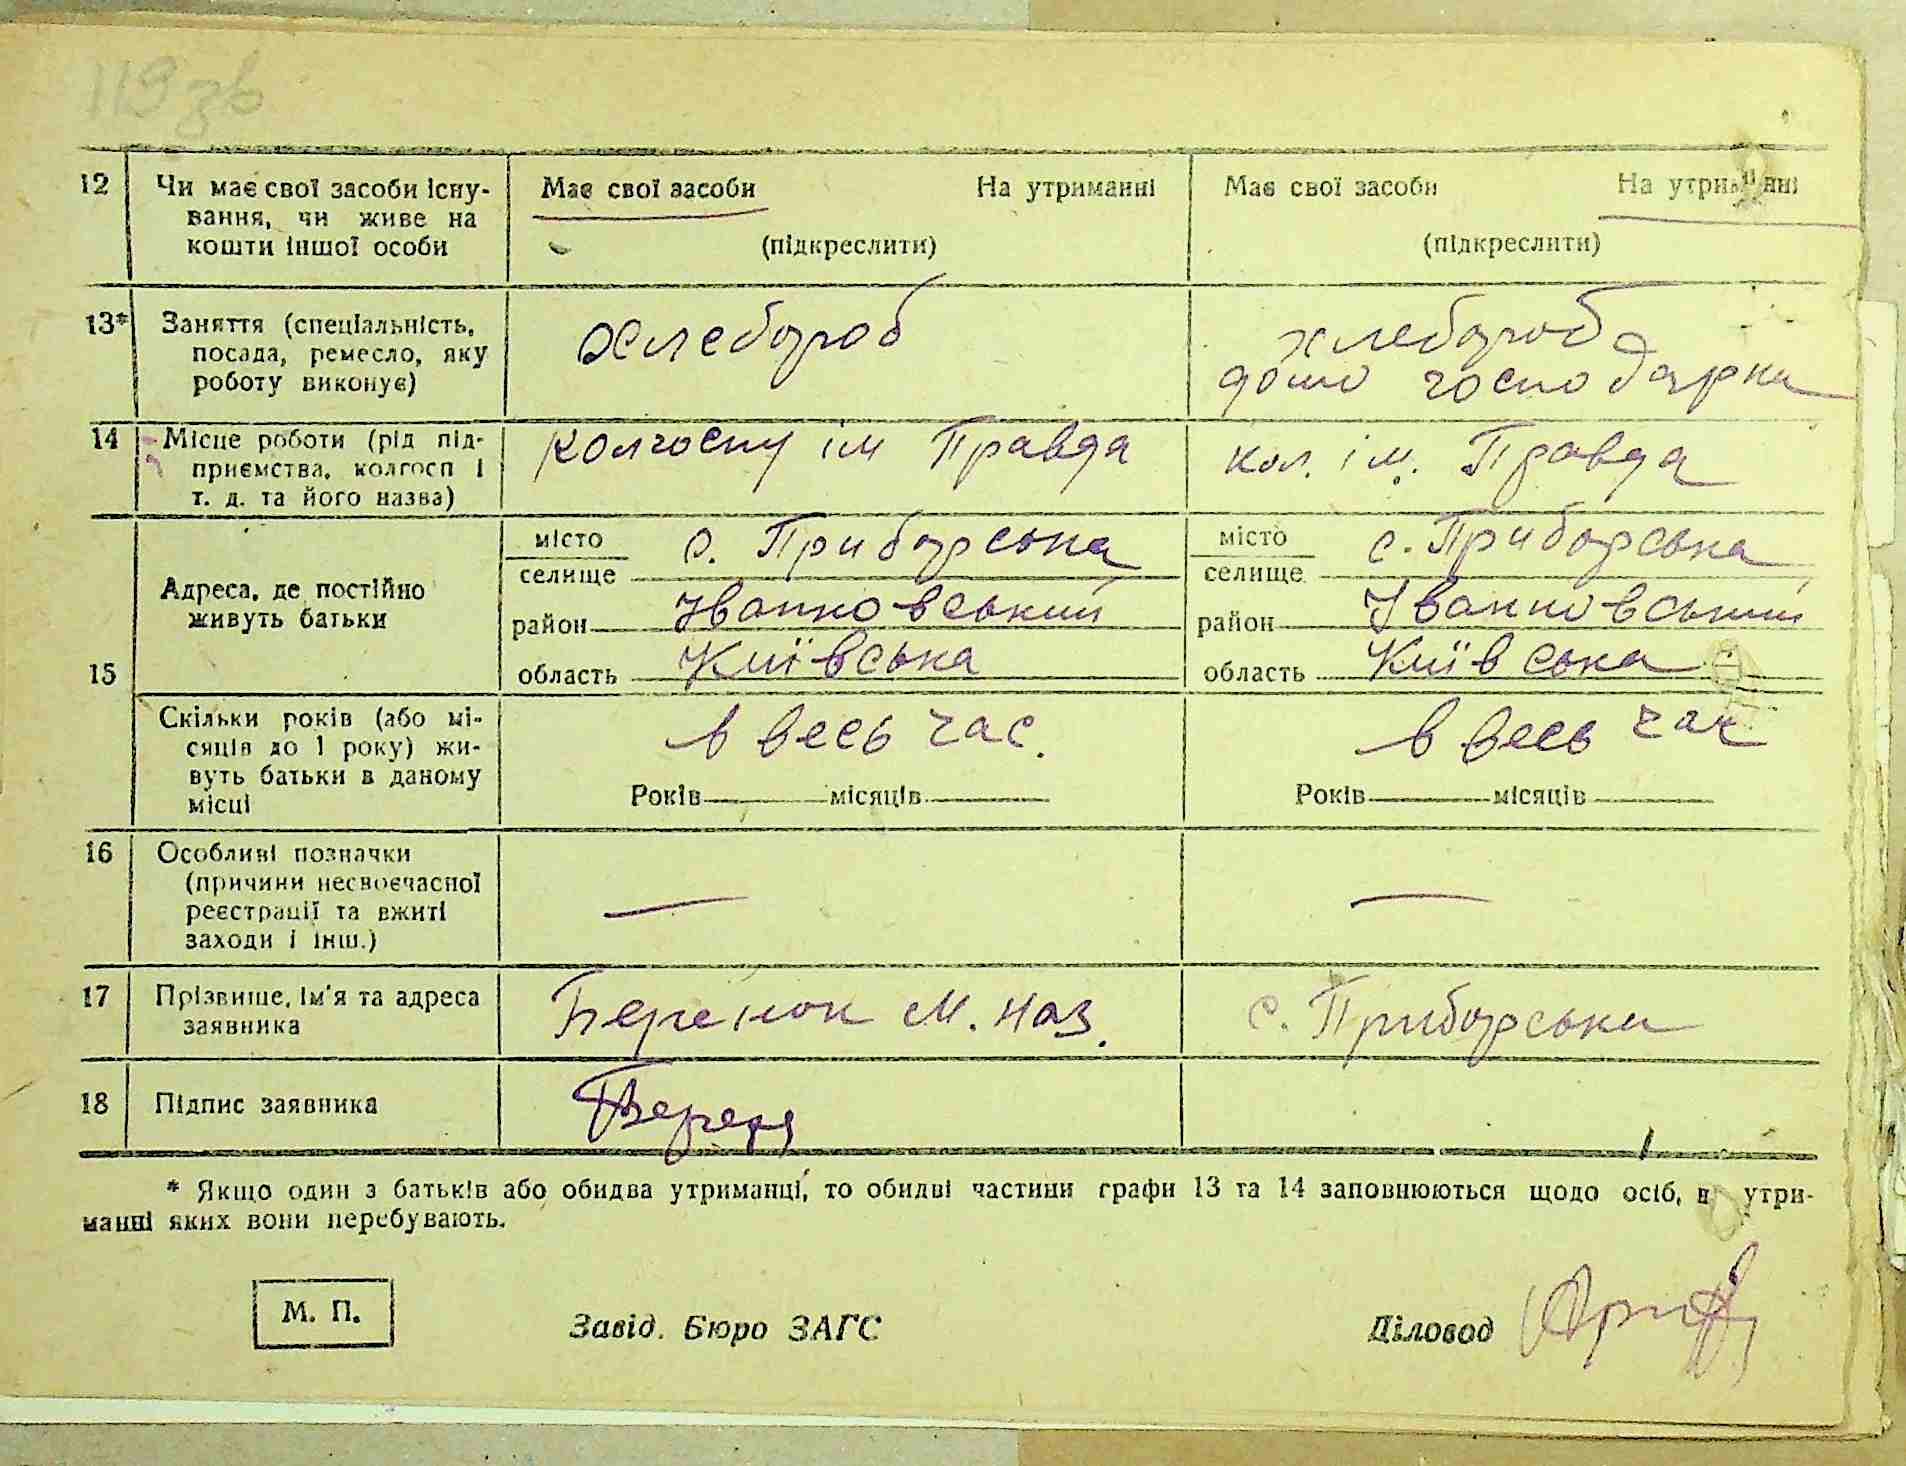 119 зв
12 Чи має свої засоби існу- Має свої засоби На утриманні Має свої засоби На утриманні
вання, чи живе на
кошти іншої особи (підкреслити) (підкреслити)
13* Заняття (спеціальність, хлебороб хлебороб
посада, ремесло, яку домо господарка
роботу виконує)
14 Місце роботи (рід під- колгоспу ім Правда кол. ім. Правда
приємства, колгосп і
т. д. та його назва)
15
Адреса, де постійно
живуть батьки
місто с. Приборська місто с. Приборська
селище селище
район Іванковський район Іванковський
область Київська область Київська
Скільки років (або мі- в весь час. в весь час
сяців до 1 року) жи-
вуть батьки в даному Років місяців Років місяців
місці
16 Особливі позначки
(причини несвоєчасної — —
реєстрації та вжиті
заходи і інш.)
17 Прізвище, ім'я та адреса М. Наз. с. Приборська
заявника
18 Підпис заявника
* Якщо один з батьків або обидва утриманці, то обидві частини графи 13 та 14 заповнюються щодо осіб, н утри-
манні яких вони перебувають.
М. П. Завід. Бюро ЗАГС Діловод